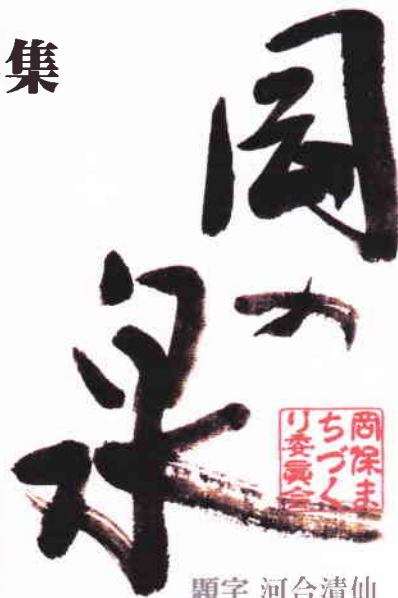 集
岡の泉
岡保ま
ちづく
り委員会
題字 河合清仙